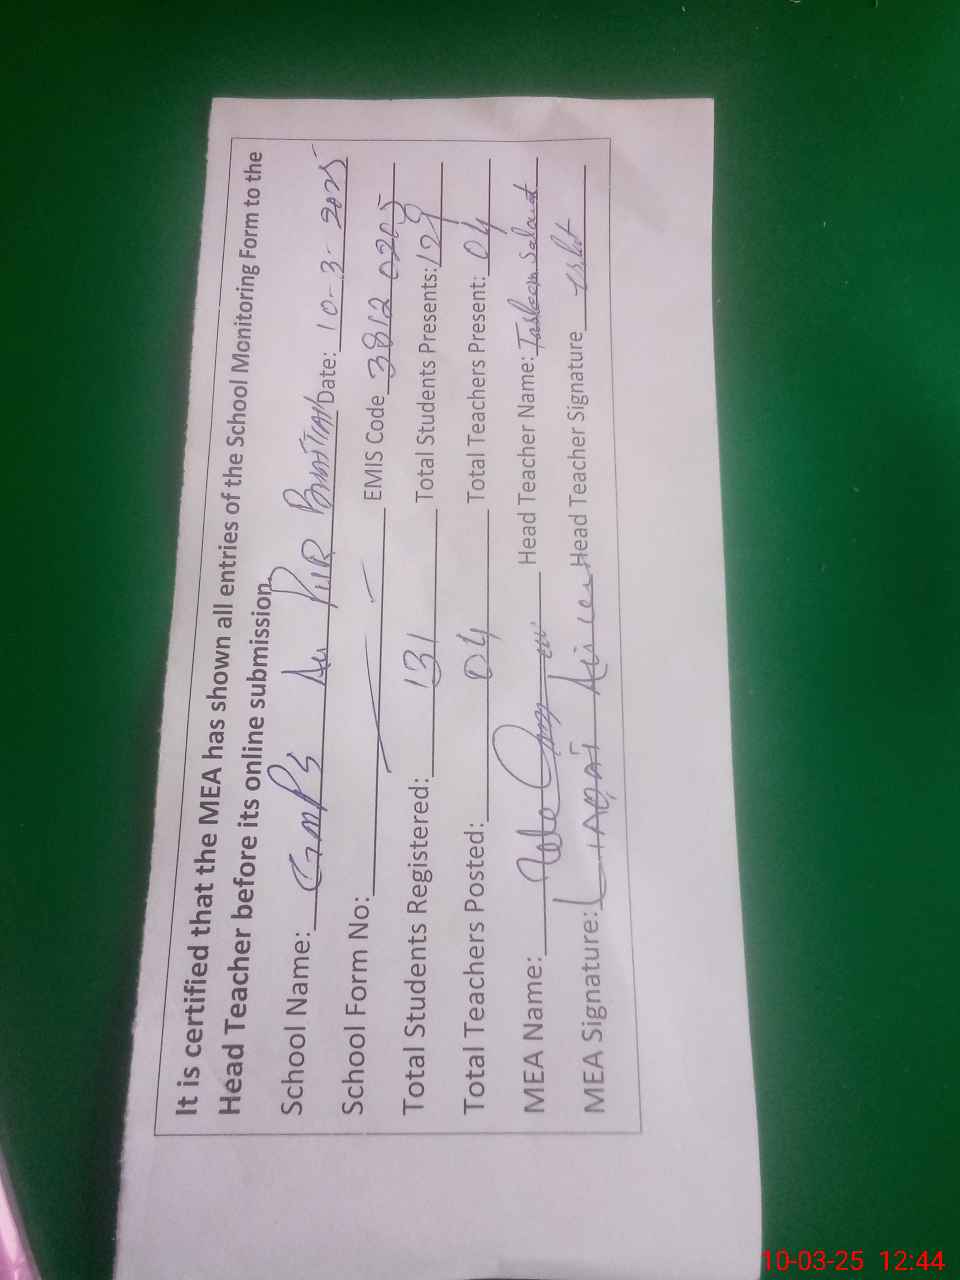 It is certified that the MEA has shown all entries of the School Monitoring Form to the
Head Teacher before its online submission.
School Name: GMPS Ali PUR Date: 10-3-2025
School Form No: EMIS Code 3812 0205
Total Students Registered: 131 Total Students Presents: 129
Total Teachers Posted: 04 Total Teachers Present: 04
MEA Name: Head Teacher Name: Tasleem
MEA Signature: LIAQAT Head Teacher Signature
10-03-25 12:44